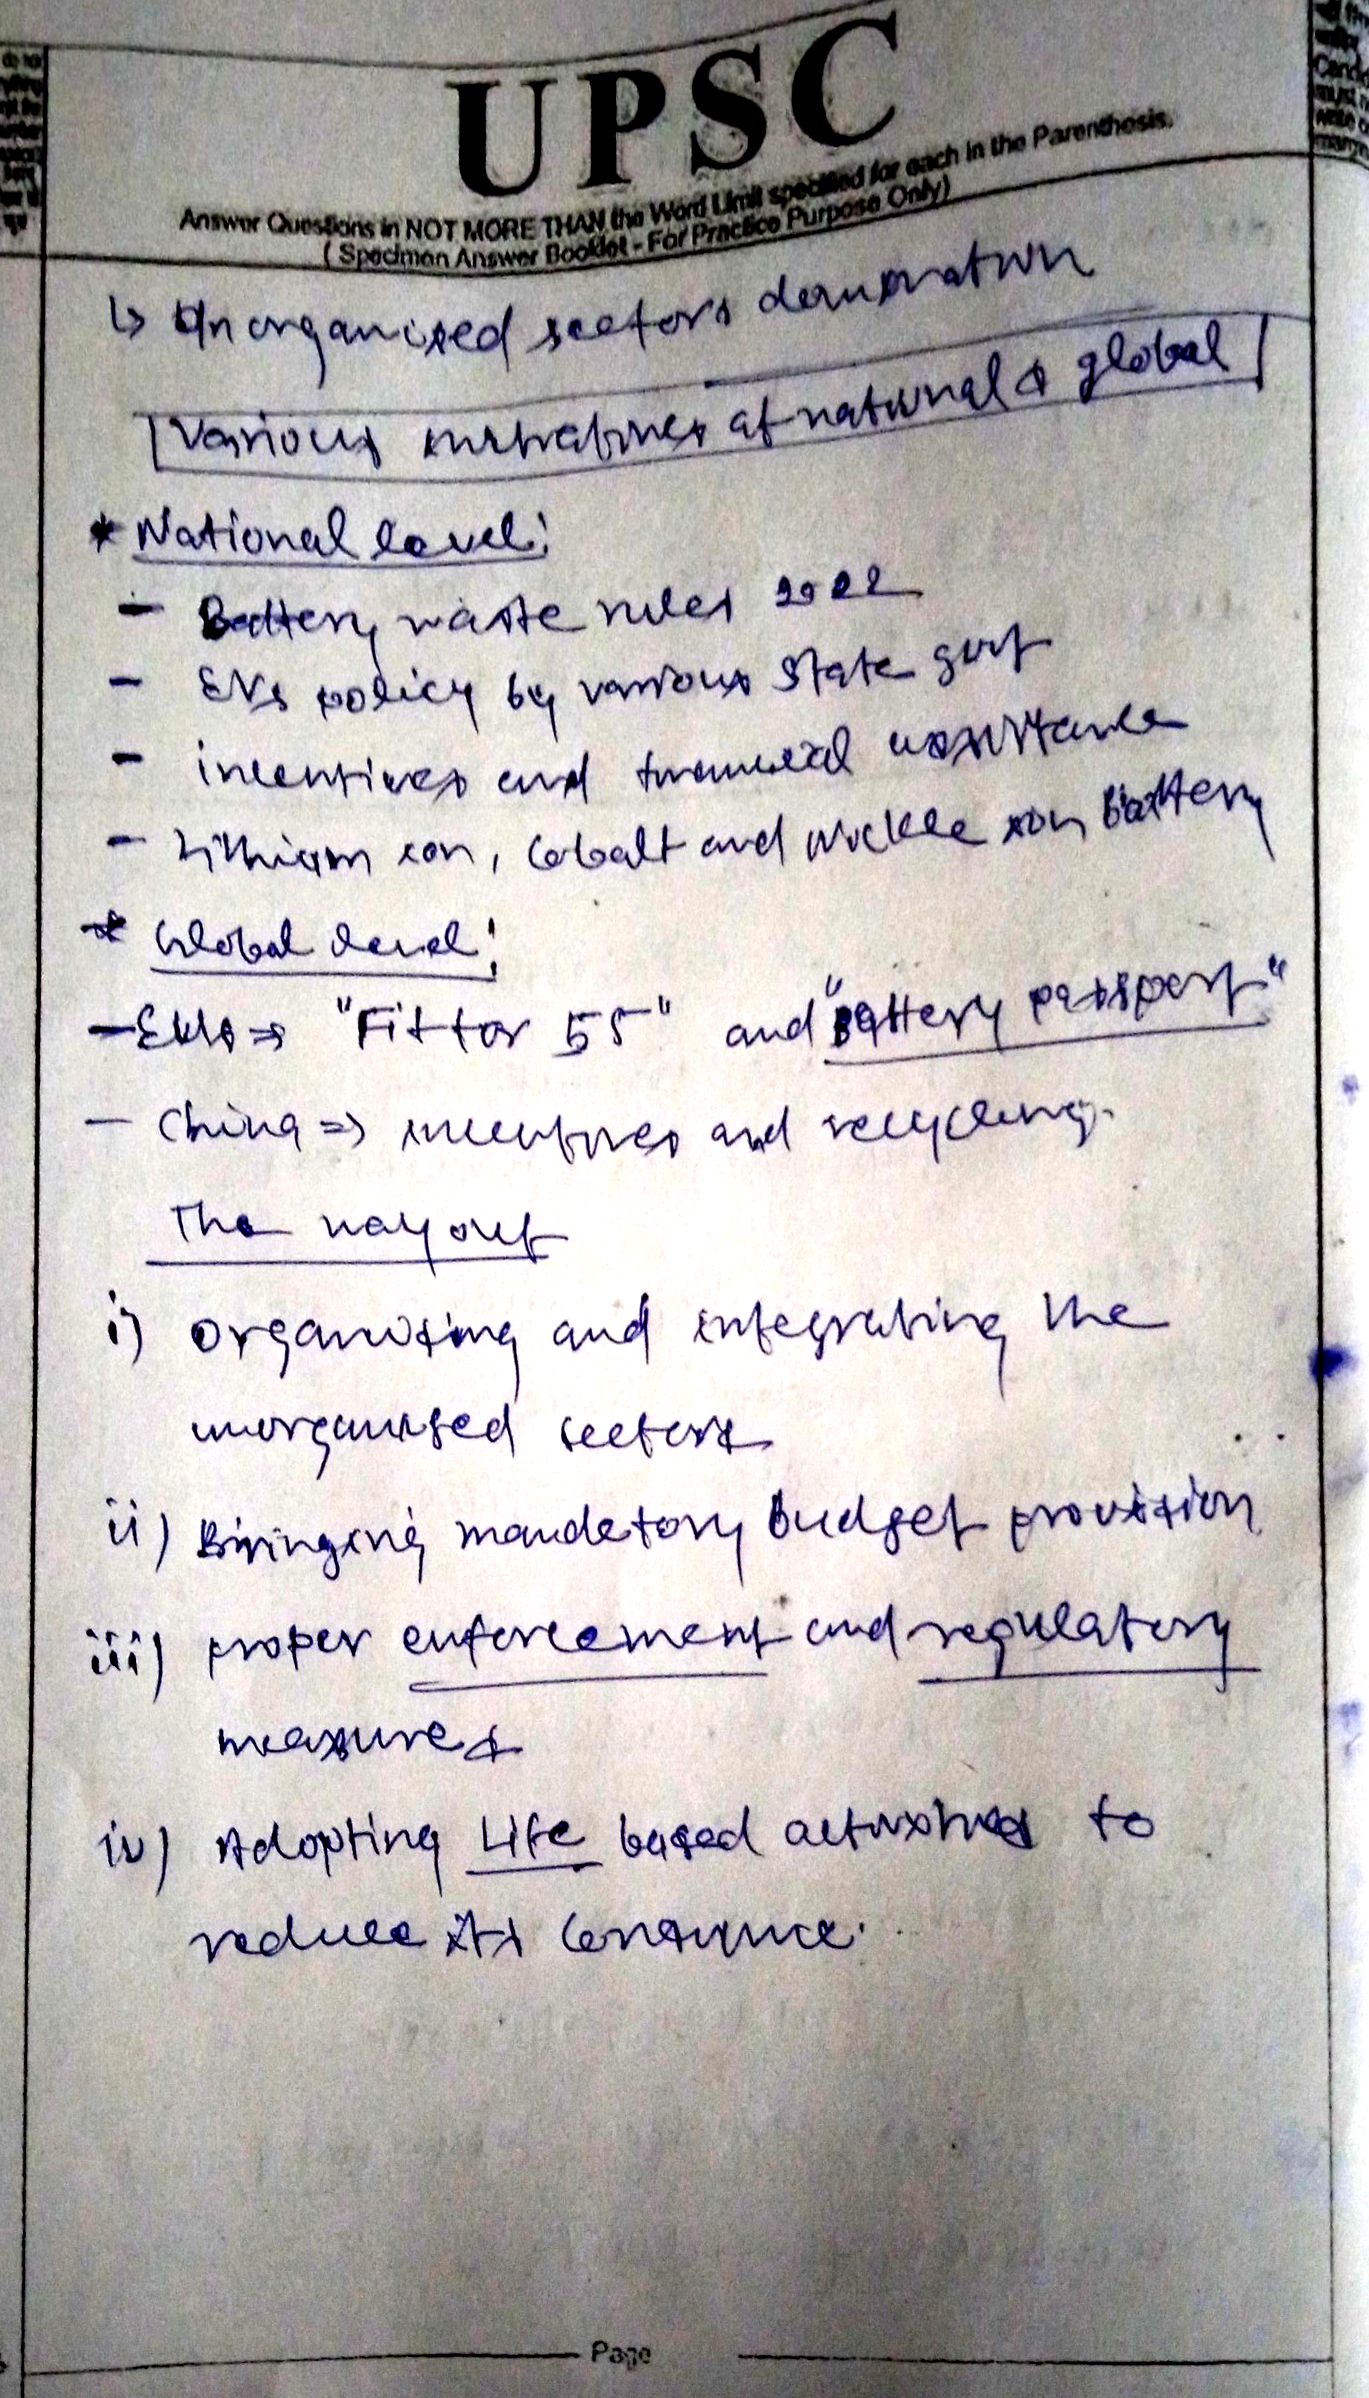 UPSC
Answer Questions in NOT MORE THAN the Word Limit specified for each in the Parenthesis.
( Specimen Answer Booklet - For Practice Purpose Only)
↳ Unorganised sectors domination
Various initiatives at national & global
* National level:
- Battery waste rules 2022
- EVs policy by various State govt
- incentives and financial assistance
- Lithium ion, Cobalt and Nickle ion Battery
* Global level:
- EU's ⇒ "Fit for 55" and "Battery passport"
- China ⇒ incentives and recycling.
The way out
i) Organising and integrating the
unorganised sectors
ii) Bringing mandatory budget provision
iii) proper enforcement and regulatory
measures
iv) Adopting Life based activities to
reduce its
Page